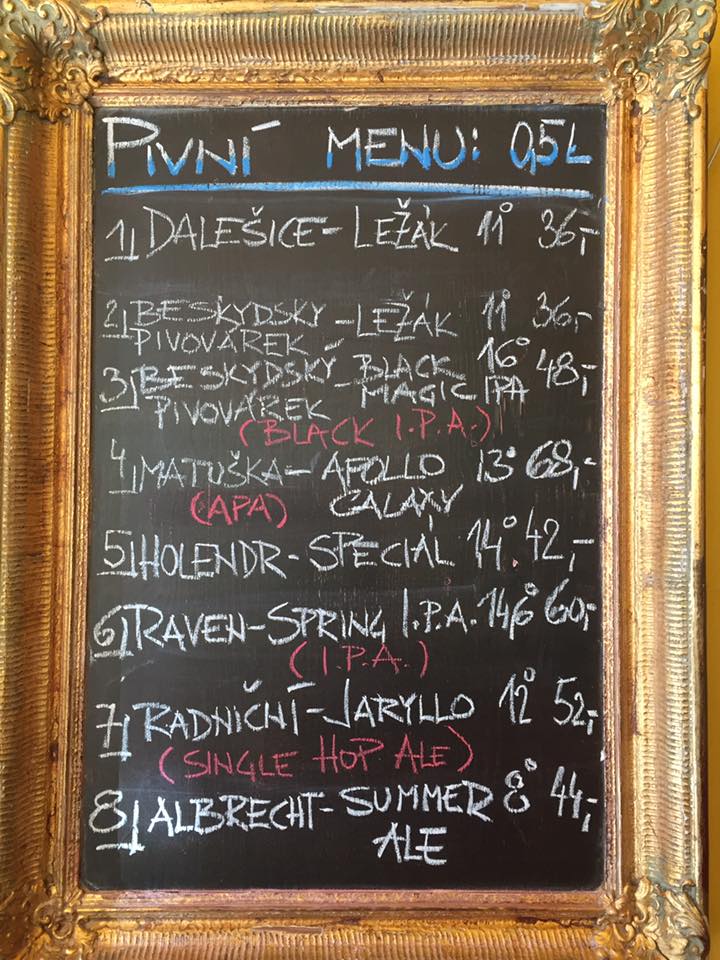 PIVNÍ MENU: 0,5L
1) DALEŠICE - LEŽÁK 11° 36,-
2) BESKYDSKÝ - LEŽÁK 11° 36,-
PIVOVÁREK
3) BESKYDSKÝ - BLACK 16° 48,-
PIVOVÁREK MAGIC IPA
(BLACK I.P.A.)
4) MATUŠKA - APOLLO 13° 68,-
(APA) GALAXY
5) HOLENDR - SPECIÁL 14° 42,-
6) RAVEN - SPRING I.P.A. 14,6° 60,-
(I.P.A.)
7) RADNIČNÍ - JARYLLO 12° 52,-
(SINGLE HOP ALE)
8) ALBRECHT - SUMMER 8° 44,-
ALE